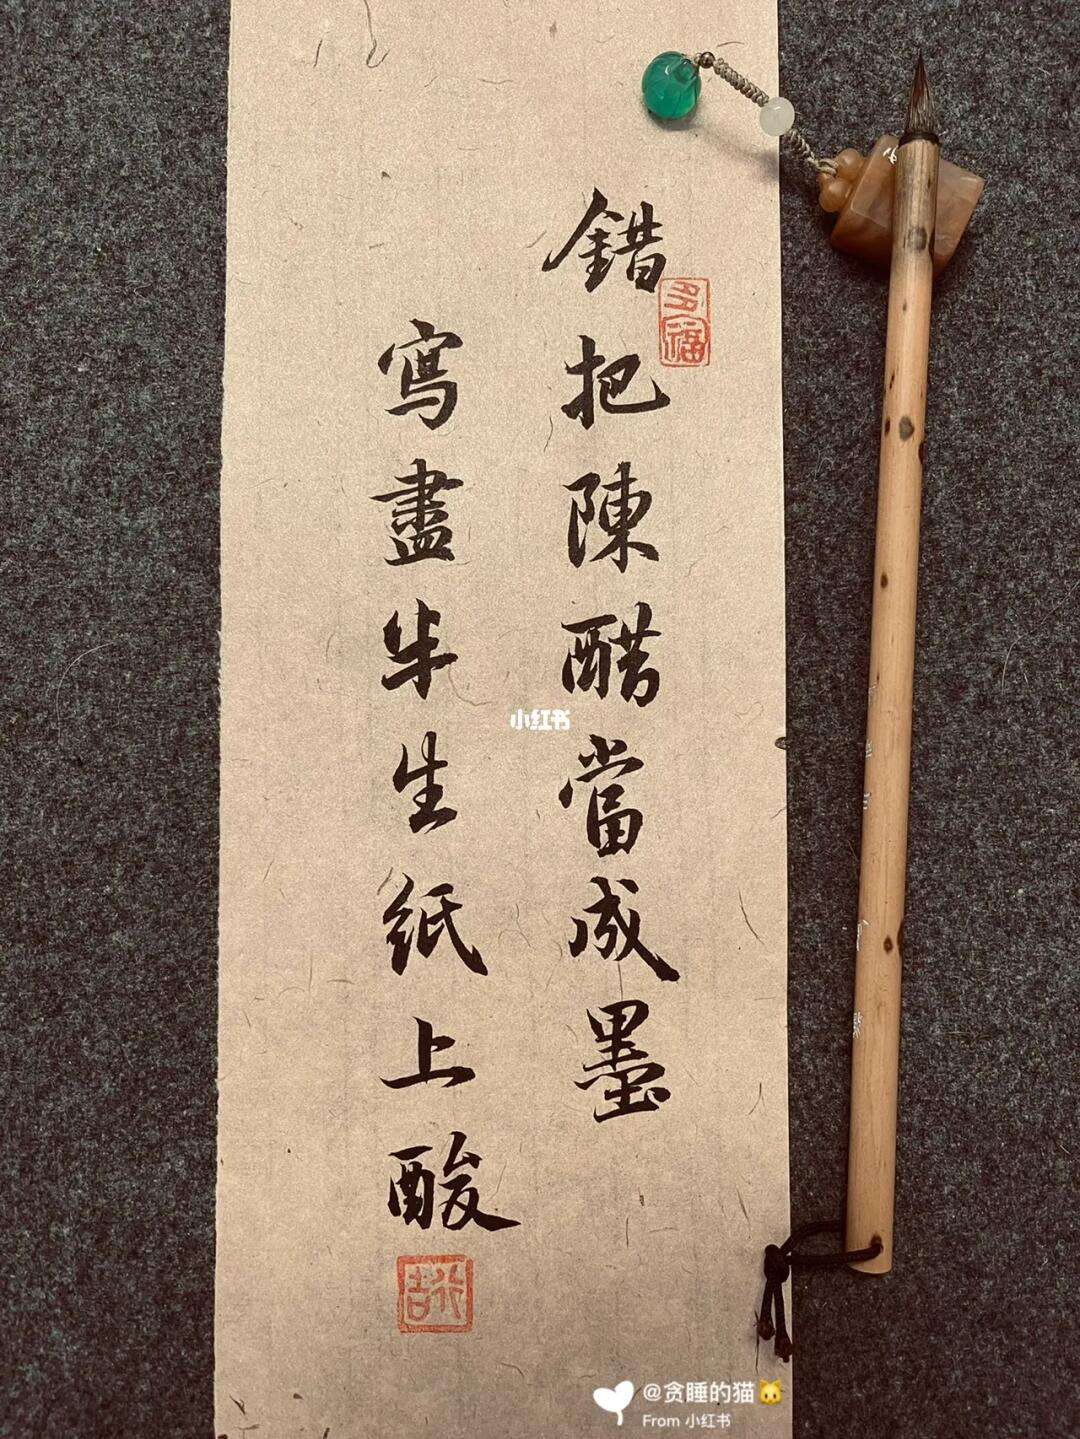 錯把陳醋當成墨
寫盡半生纸上酸
多福
小红书
@贪睡的猫
From 小红书